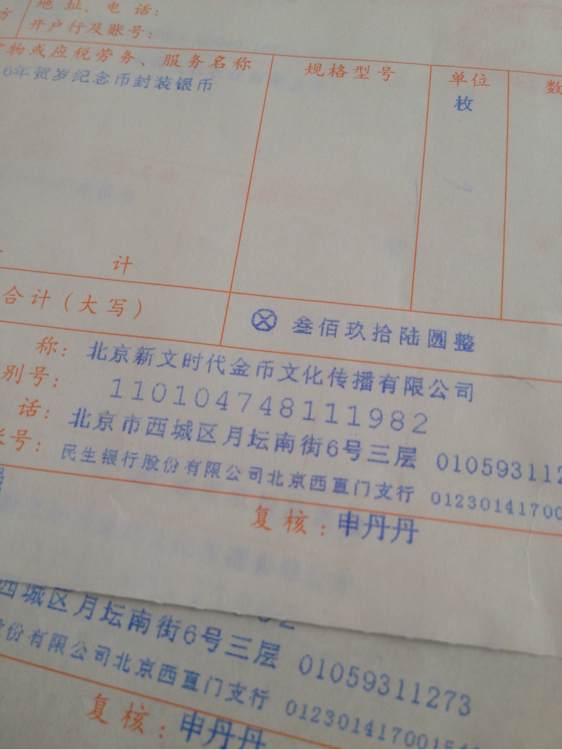 地址、电话:
方
开户行及账号:
物或应税劳务、服务名称 规格型号 单位 数
6年贺岁纪念币封装银币 枚
计
合计(大写) ⊗ 叁佰玖拾陆圆整
称: 北京新文时代金币文化传播有限公司
别号: 110104748111982
话: 北京市西城区月坛南街6号三层 010593112
账号: 民生银行股份有限公司北京西直门支行 01230141700
复核: 申丹丹
西城区月坛南街6号三层 01059311273
份有限公司北京西直门支行 0123014170015
复核: 申丹丹